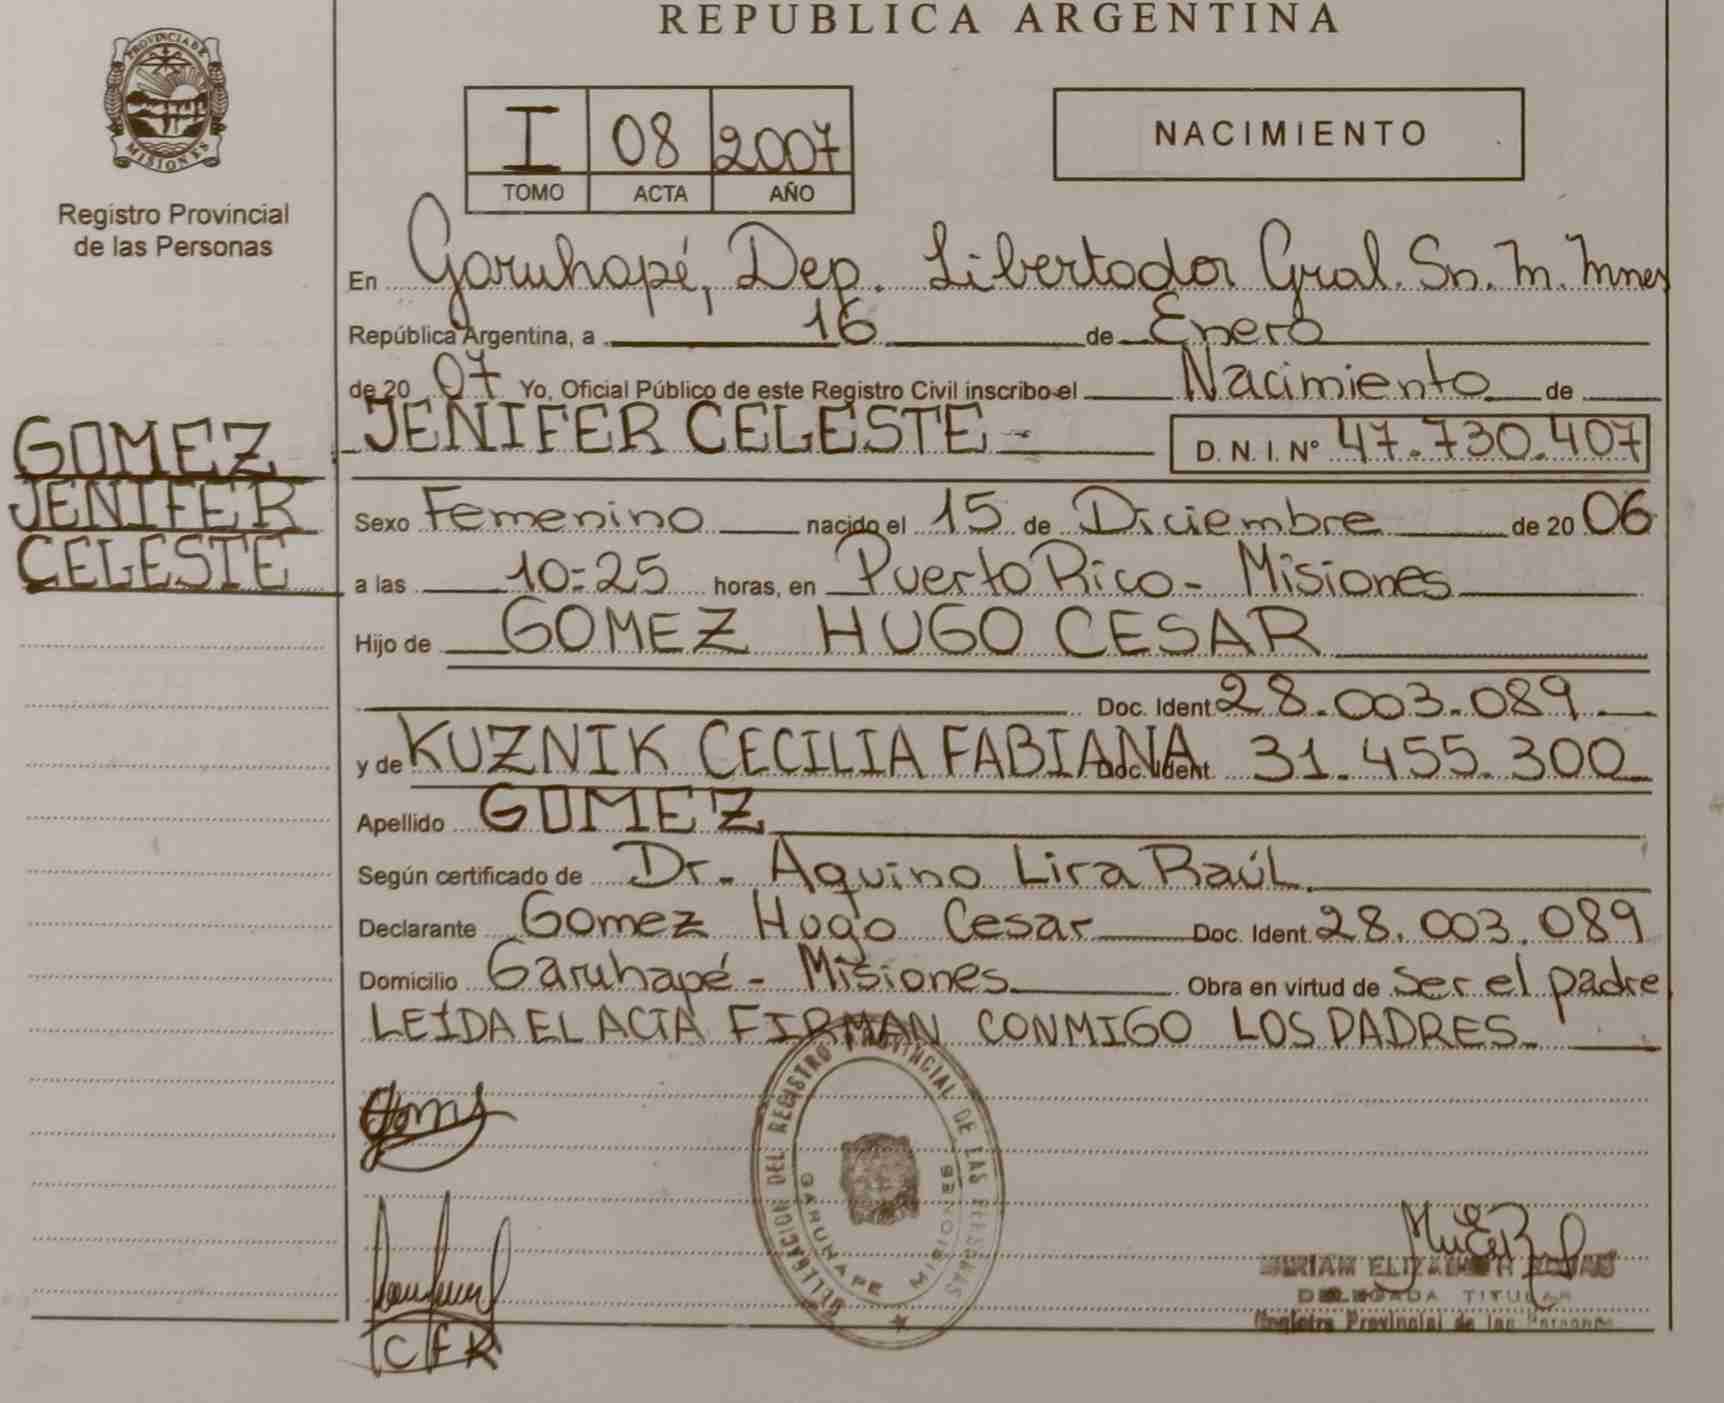 REPUBLICA ARGENTINA
PROVINCIA DE
MISIONES
Registro Provincial
de las Personas
I 08 2007
TOMO ACTA AÑO
NACIMIENTO
En Garuhapé, Dep. Libertador Gral. Sn. M. Mnes
República Argentina, a 16 de Enero
de 20 07 Yo, Oficial Público de este Registro Civil inscribo el Nacimiento de
JENIFER CELESTE D. N. I. Nº 47.730.407
GOMEZ
JENIFER
CELESTE
Sexo Femenino nacido el 15 de Diciembre de 20 06
a las 10:25 horas, en Puerto Rico - Misiones
Hijo de GOMEZ HUGO CESAR
Doc. Ident 28.003.089
y de KUZNIK CECILIA FABIANA Doc. Ident 31.455.300
Apellido GOMEZ
Según certificado de Dr. Aquino Lira Raúl
Declarante Gomez Hugo Cesar Doc. Ident. 28.003.089
Domicilio Garuhapé - Misiones Obra en virtud de ser el padre
LEÍDA EL ACTA FIRMAN CONMIGO LOS PADRES
DELEGACION DEL REGISTRO PROVINCIAL DE LAS PERSONAS
GARUHAPE MISIONES
CFK
MIRIAM ELIZABETH
DELEGADA TITULAR
Registro Provincial de las Personas